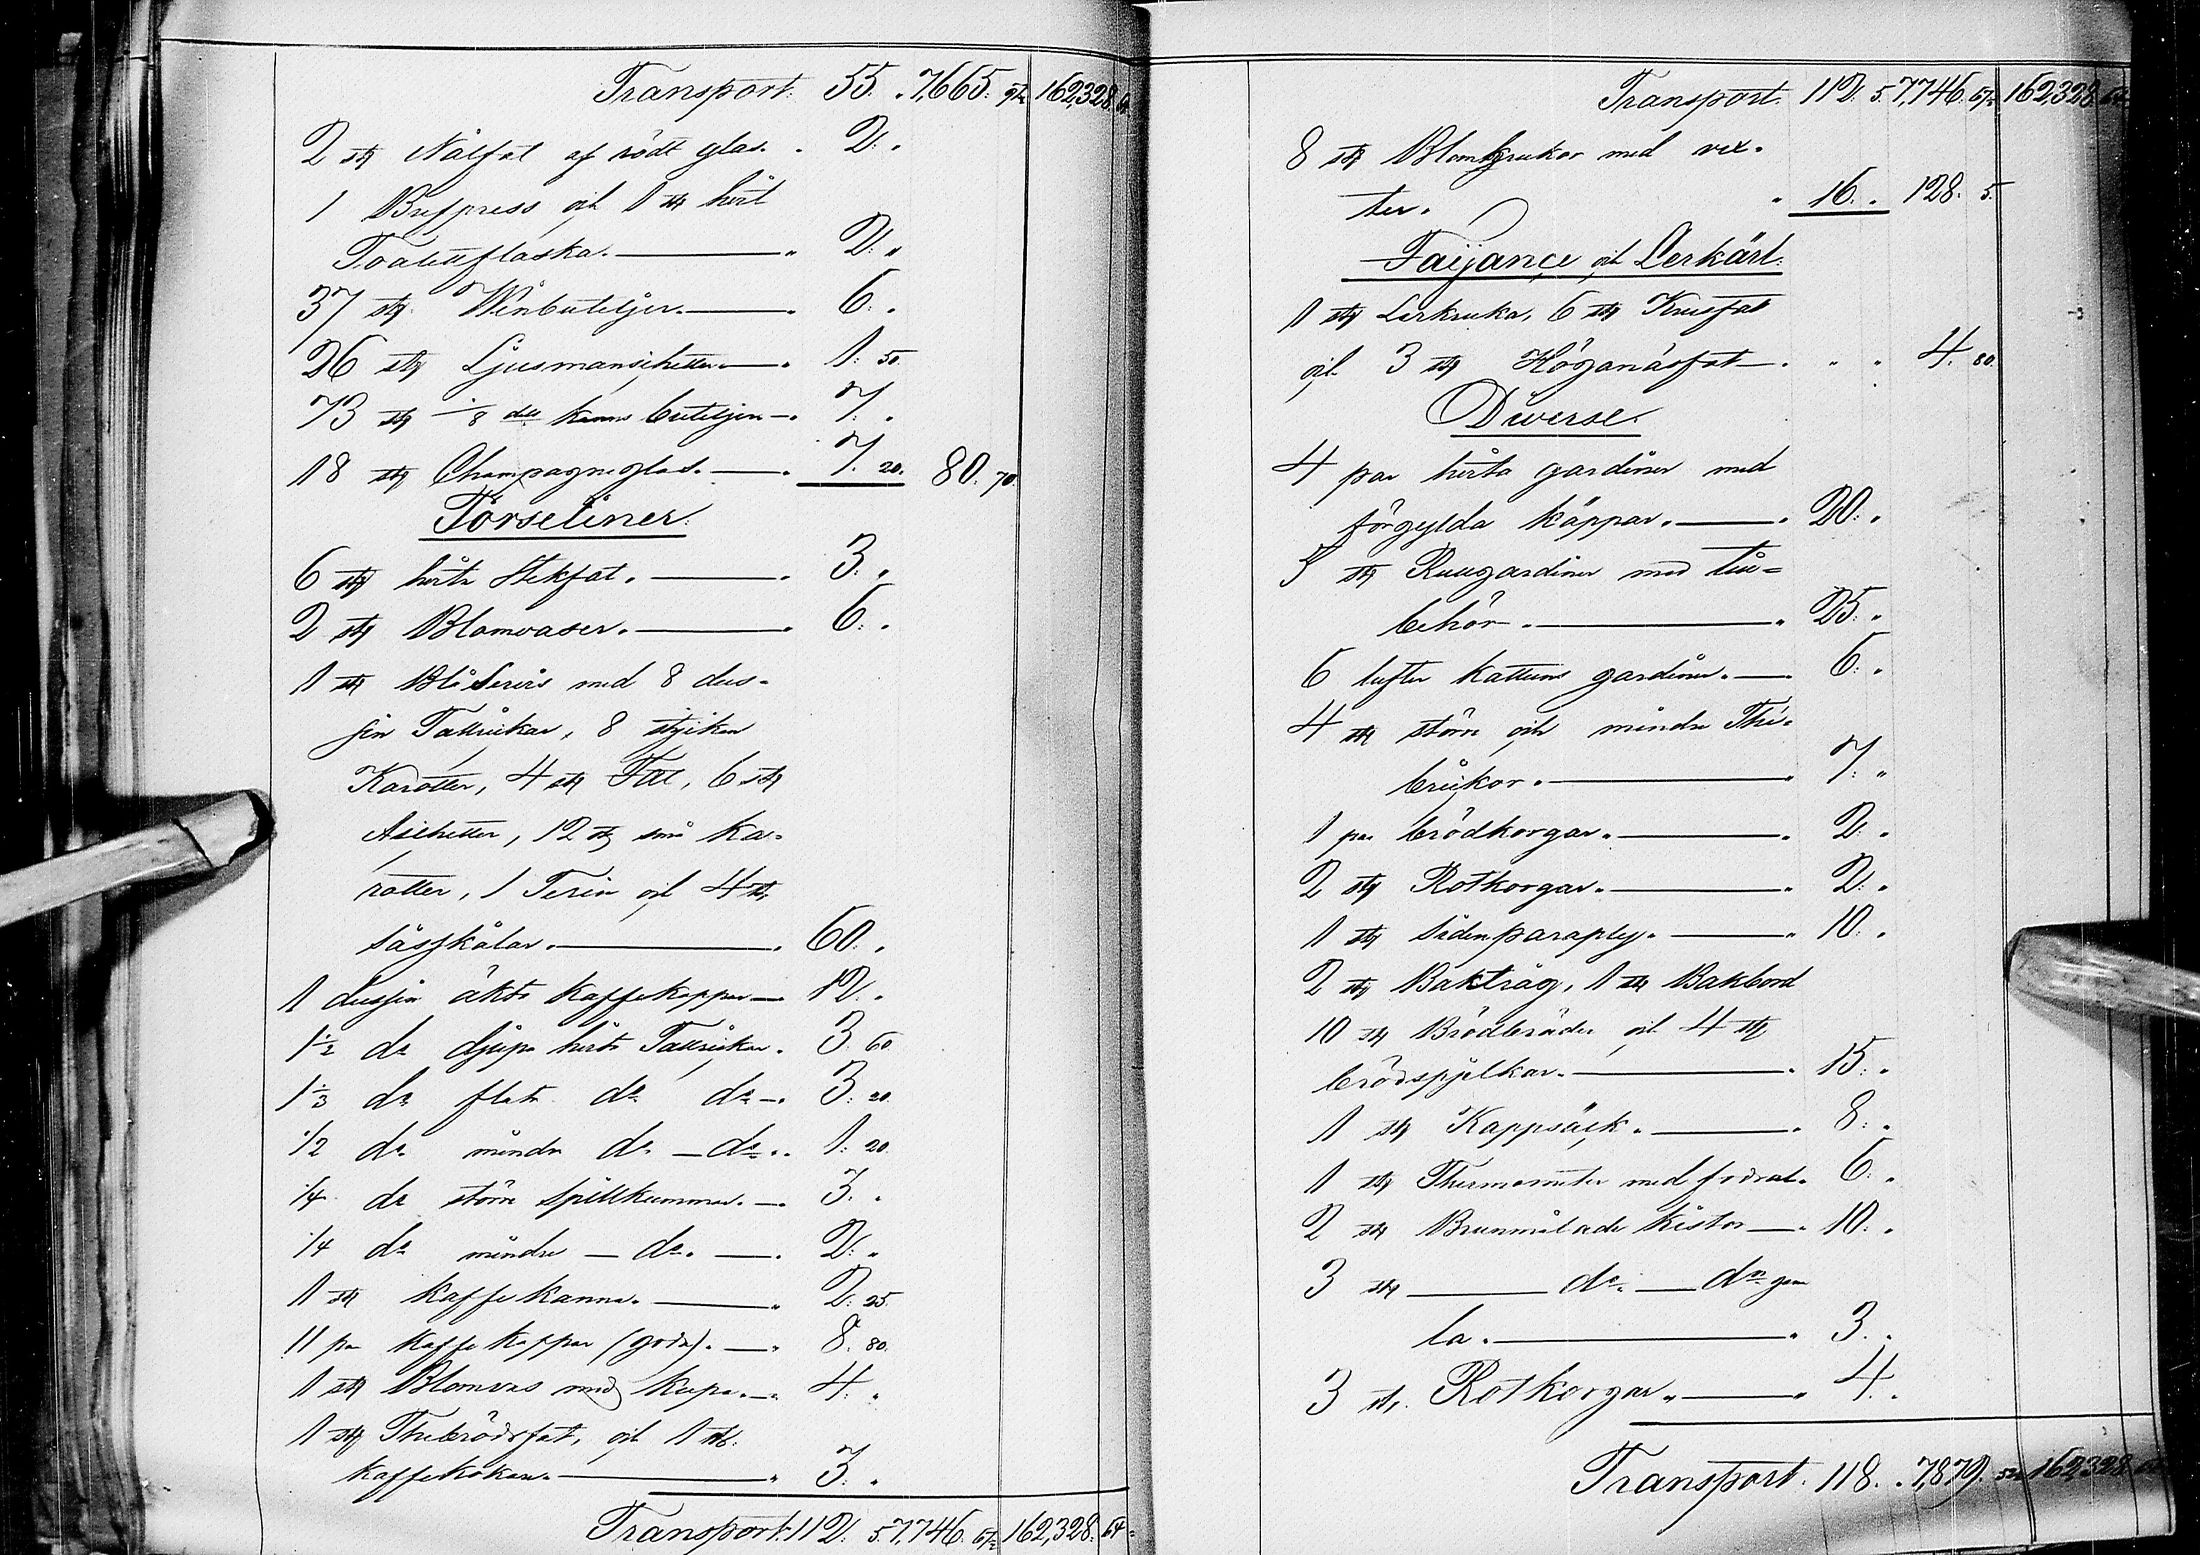 Transport. 55. " 7,665. 97. 162,328. 64.
2 st Nålfat af rödt glas. " 2. "
1 Brefpress och 1 st hvit
Toalettflaska. — " 2. "
37 st Winbuteljer. — " 6. "
26 st Ljusmanschetter — " 1. 50.
73 st 1/8 dels kanns buteljer — " 7. "
18 st Champagneglas. — " 7. 20. 80. 70.
Porseliner.
6 st hvita Stekfat. — " 3. "
2 st Blomvaser. — " 6. "
1 st Blå Servis med 8 dus-
sin Tallrickar, 8 stycken
Karotter, 4 st Fat, 6 st
Aschetter, 12 st små ka-
rotter, 1 Terin och 4 st
såsskålar. — " 60. "
1 dussin äkta kaffekoppar — 12. "
1 1/2 do djupa hvita Tallrickar. 3. 60.
1 1/3 do flata do do — " 3. 20.
1/2 do mindre do — do. " 1. 20.
1/4 do större Spillkummar. — " 3. "
1/4 do mindre — do. — " 2. "
1 st kaffekanna. — " 2. 25.
11 par kaffekoppar (goda). — " 8. 80.
1 st Blomvas med kupa. — " 4. "
1 st Thebrödsfat, och 1 st.
kaffekokare. — " 3. "
Transport. 112. 5. 7,746. 67. 162,328. 64.
Transport. 112. 5. 7,746. 67. 162,328. 64.
8 st Blomkrukor med vex-
ter. " 16. " 128. 5.
Faijançe och Lerkärl.
1 st Lerkruka, 6 st Krusfat
och 3 st Höganäsfat — " " " 4. 80.
Diverse.
4 par hvita gardiner med
förgylda käppar. — " 20. "
5 st Rullgardiner med till-
behör. — " 25. "
6 lufter kattuns gardiner. — " 6. "
4 st större och mindre The-
brickor. — " 7. "
1 par brödkorgar. — " 2. "
2 st Rotkorgar. — " 2. "
1 st Sidenparaply. — " 10. "
2 st Baktråg, 1 st Bakbord
10 st Brödbräder och 4 st
brödspjelkar. — " 15. "
1 st Kappsäck. — " 8. "
1 st Thermometer med fodral. 6. "
2 st Brunmålade kistor — " 10. "
3 st — do. — do gam
la. — " 3. "
3 st. Rotkorgar. — " 4. "
Transport. 118. " 7,879. 52. 162,328. 64.